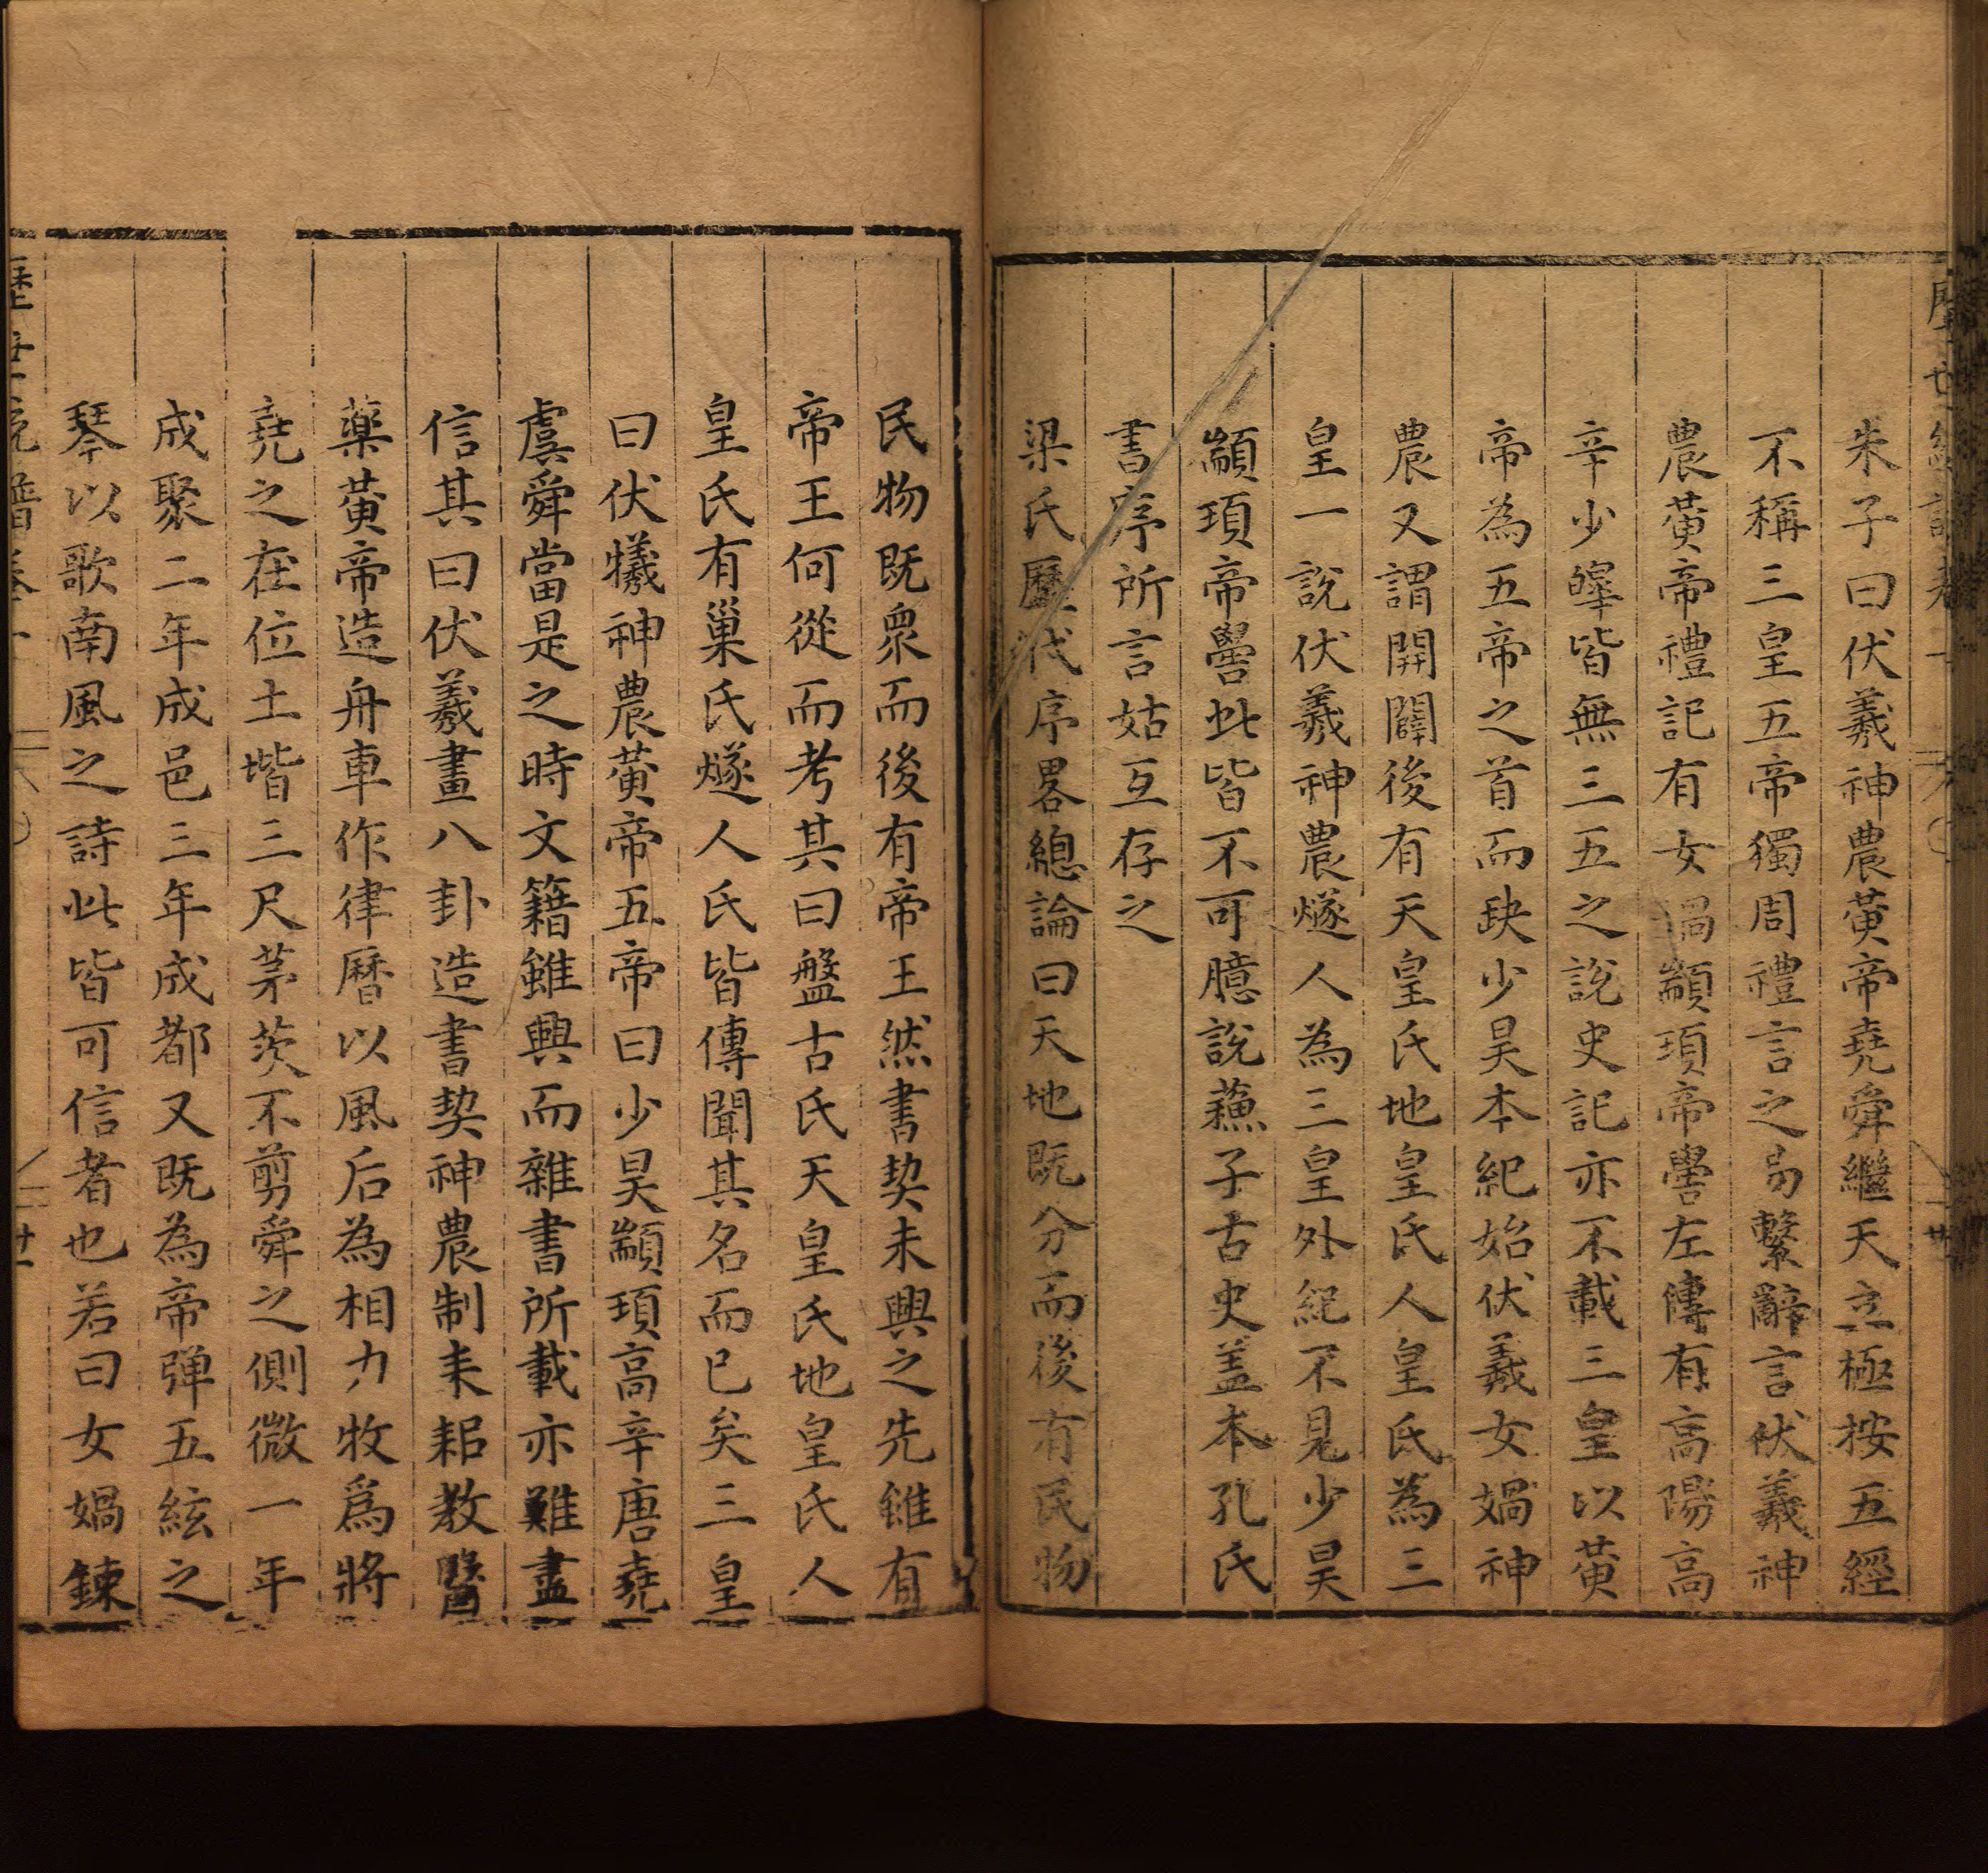 朱子曰伏羲神農黃帝堯舜繼天立極按五經
不稱三皇五帝獨周禮言之易繫辭言伏羲神
農黃帝禮記有女媧顓頊帝嚳左傳有高陽高
辛少皞皆無三五之說史記亦不載三皇以黃
帝為五帝之首而缺少昊本紀始伏羲女媧神
農又謂開闢後有天皇氏地皇氏人皇氏為三
皇一說伏羲神農燧人為三皇外紀不見少昊
顓頊帝嚳此皆不可臆說蘓子古史盖本孔氏
書序所言姑互存之
梁氏歷代序畧總論曰天地既分而後有民物
民物既眾而後有帝王然書契未興之先雖有
帝王何從而考其曰盤古氏天皇氏地皇氏人
皇氏有巢氏燧人氏皆傳聞其名而已矣三皇
曰伏犧神農黃帝五帝曰少昊顓頊高辛唐堯
虞舜當是之時文籍雖興而雜書所載亦難盡
信其曰伏羲畫八卦造書契神農制耒耜教醫
藥黃帝造舟車作律曆以風后為相力牧爲將
堯之在位土堦三尺茅茨不剪舜之側微一年
成聚二年成邑三年成都又既為帝弹五絃之
琴以歌南風之詩此皆可信者也若曰女媧鍊
歷世統譜卷一
廿一